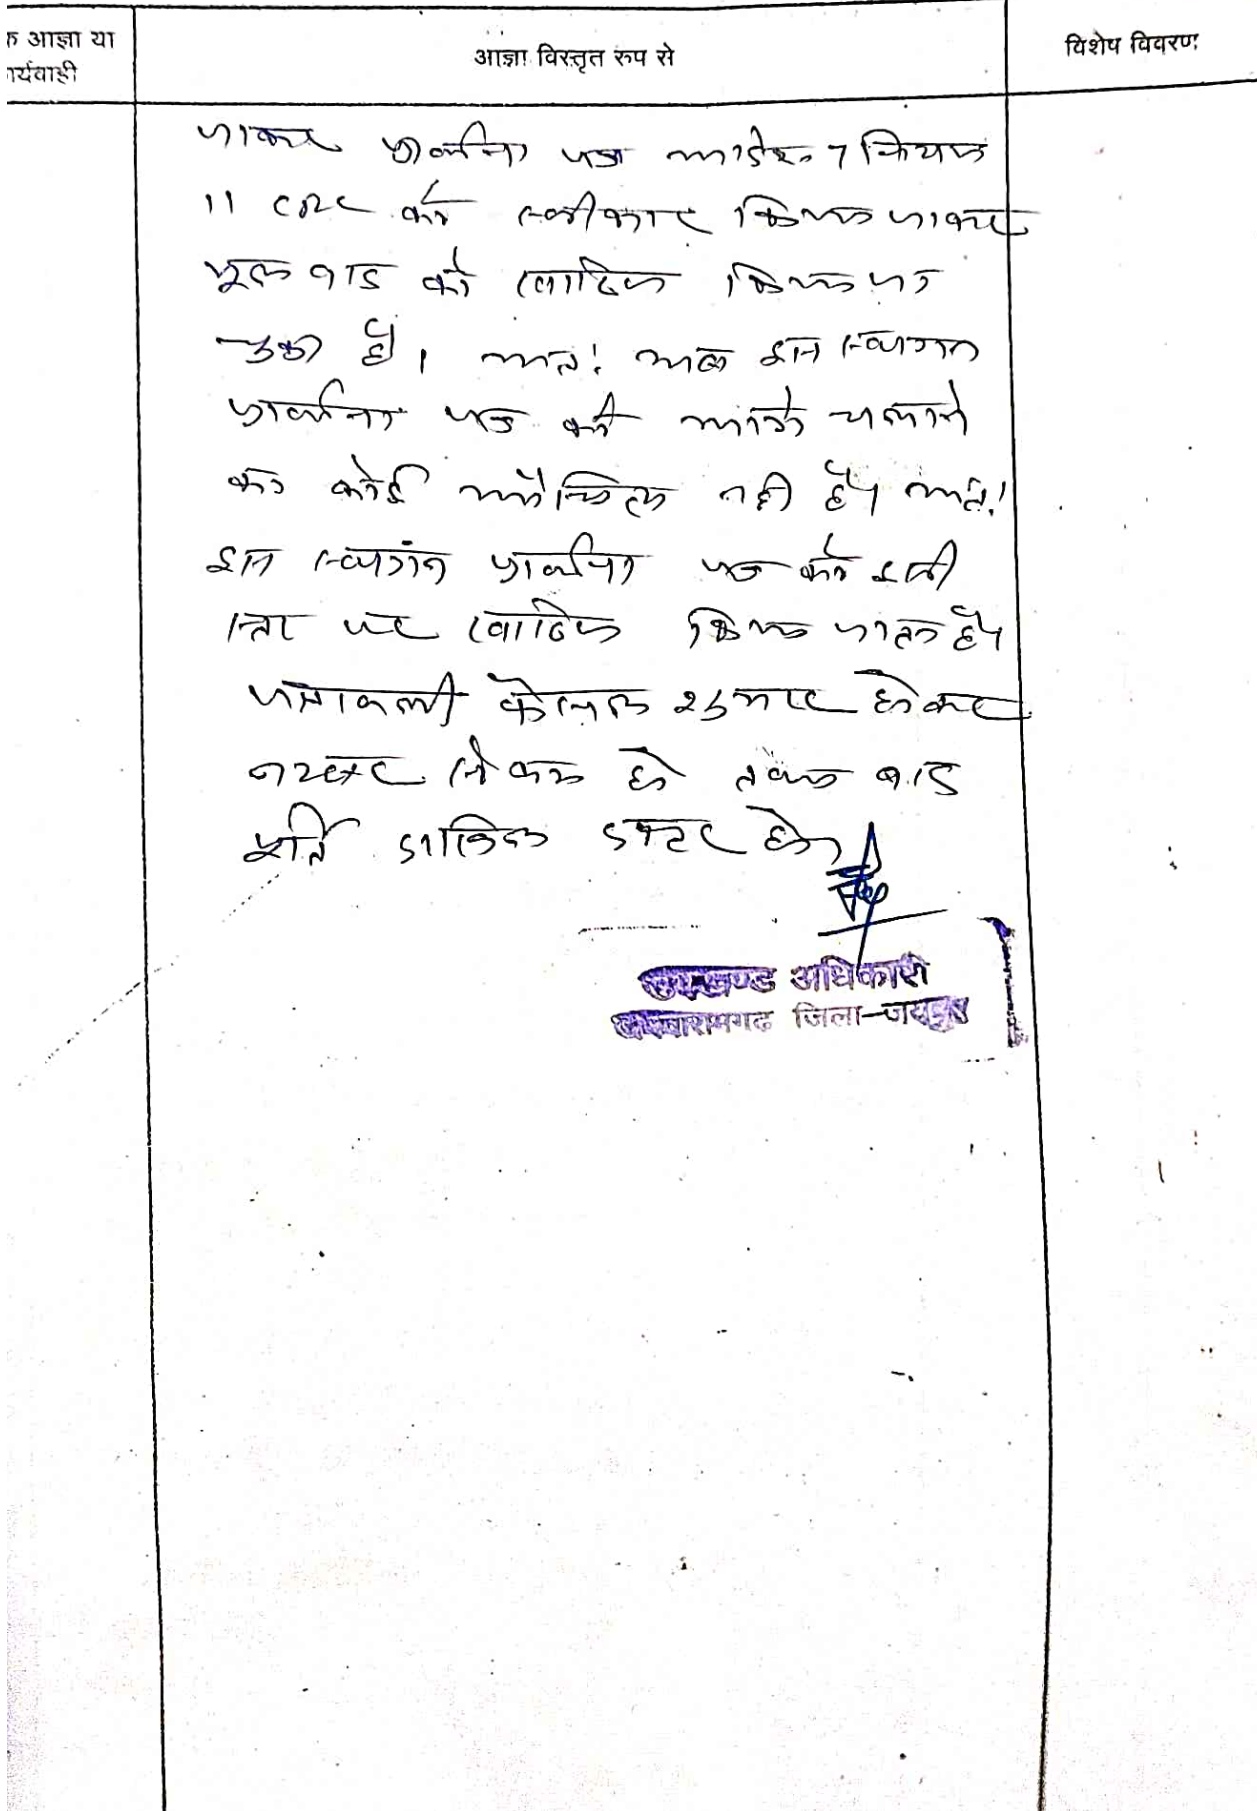 क आज्ञा या
र्यवाही
आज्ञा विस्तृत रूप से
विशेष विवरण
जाकर प्रार्थना पत्र आदेश 7 नियम
11 CPC को स्वीकार किया जाकर
मूल वाद को खारिज किया जा
चुका है। अत: अब इस स्थगन
प्रार्थना पत्र को आगे चलाने
का कोई औचित्य नही है। अत:
इस स्थगन प्रार्थना पत्र को इसी
स्तर पर खारिज किया जाता है।
पत्रावली फैसल शुमार होकर
नम्बर से कम हो बाद
पूर्ति दाखिल दफ्तर हो।
उपखण्ड अधिकारी
जमवारामगढ जिला-जयपुर